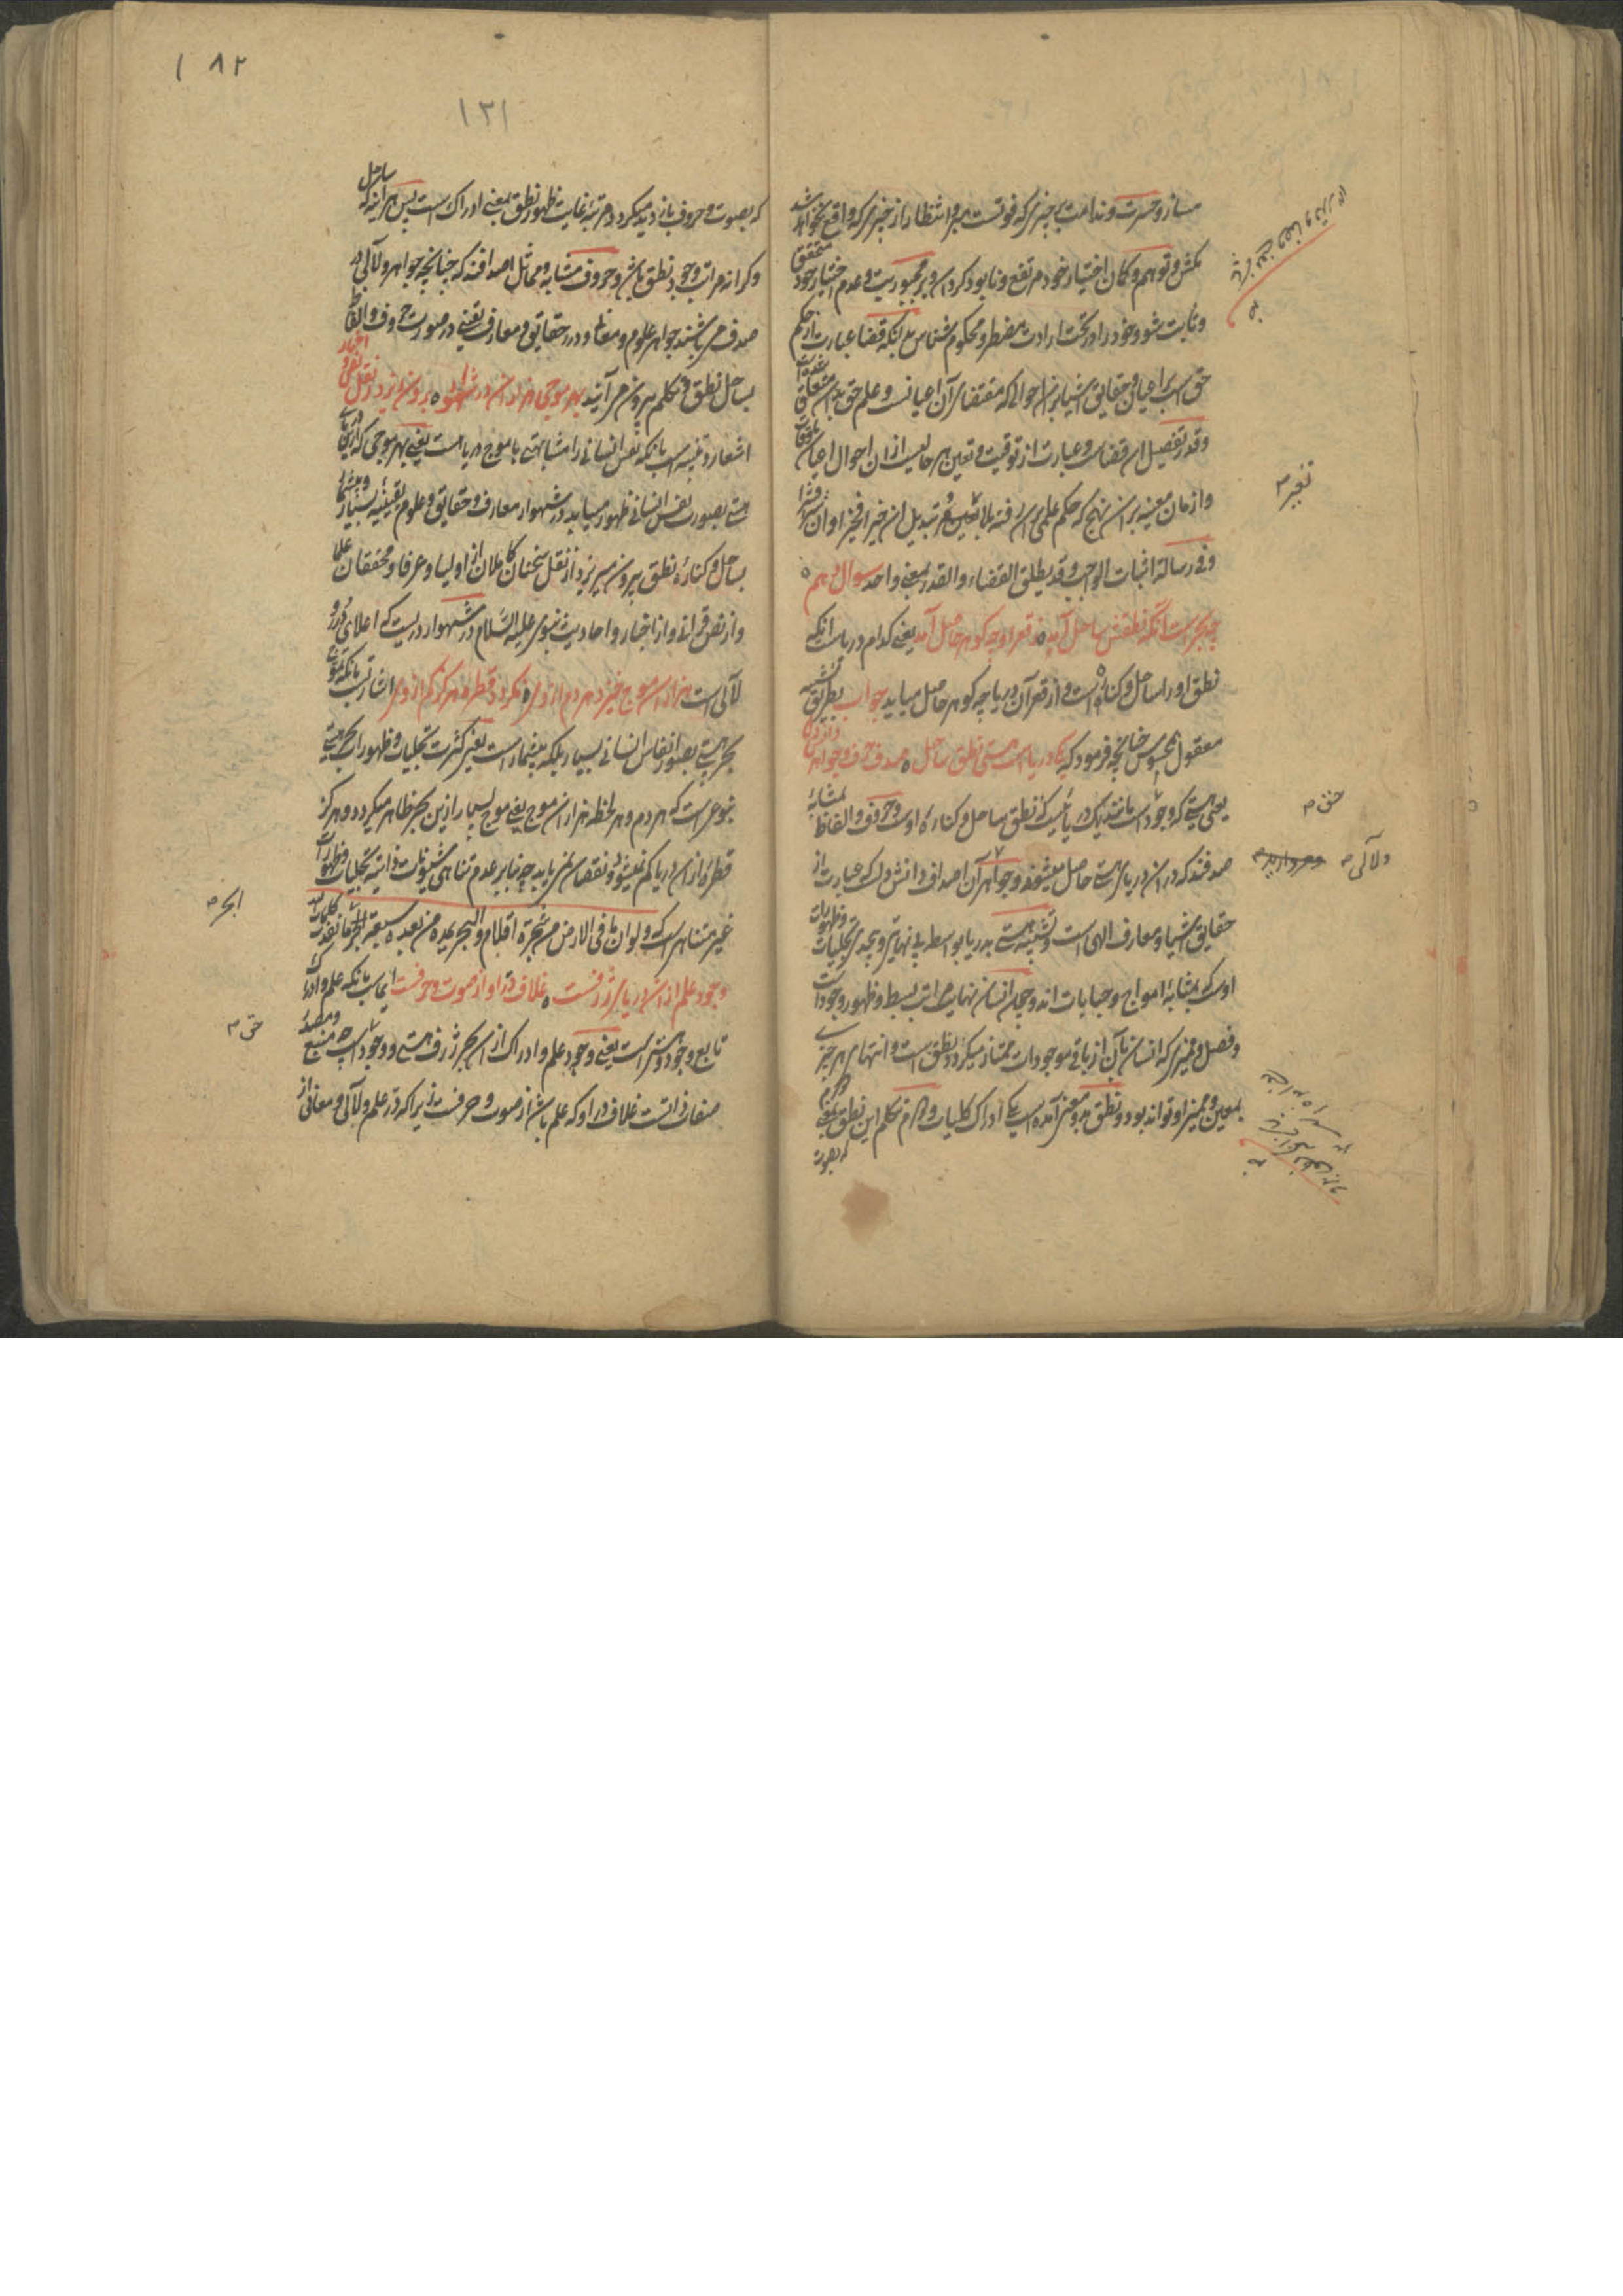 مساز و حسرت و ندامت بر چیزی که فوتست مبر و انتظار از چیزی که واقع نخواهد شد
مکش و توهم و گمان اختیار خود مرتفع و نابود گردان و بر مجبوریت و عدم اختیار خود متحقق
و ثابت شو و خود را در تحت ارادت مضطر و محکوم شناس بدانکه قضا عبارت از حکم
حق است بر اعیان و حقایق اشیا بر آن احوالی که مقتضای آن اعیانست و علم حق بدان متعلق
و قدر تفصیل آن قضاست و عبارت از توقیت و تعیین هر حالیست از آن احوال اعیان باوقات
و ازمان معینه بر آن نهج که حکم علمی بر آن رفته بلا تغییر و تبدیل ان خیرا فخیر او ان شرا فشرا
و فی رسالة اثبات الواجب و قد یطلق القضاء والقدر بمعنی واحد سوال دهم
چه بحرست آنکه نطقش ساحل آمد ز قعر او چه گوهر حاصل آمد یعنی کدام دریاست آنکه
نطق او را ساحل و کناره است و از قعر آن دریا چه گوهر حاصل میاید جواب بطریق تشبیه
معقول بمحسوس چنانچه فرمود که یکی دریاست هستی نطق ساحل صدف حرف و جواهر دانش دل
یعنی هستی که وجود است مانند یک دریائیست که نطق ساحل و کناره اوست و حروف و الفاظ بمثابه
صدفند که در آن دریای هستی حاصل میشوند و جواهر آن اصداف دانش دل که عبارت از
حقایق اشیا و معارف الهی است و تشبیه هستی به دریا بواسطه بی نهایتی و بیحدی تجلیات و ظهورات
اوست که بمثابه امواج و حبابات اند و چون انسان نهایت مراتب بسط و ظهور وجود است
و فصل ممیزی که انسان بآن از باقی موجودات ممتاز میگردد نطق است و انتهای هر چیزی
بمعین و ممیز او تواند بود و نطق بدو معنی آمده است یکی ادراک کلیات و دوم تکلم این نطق بمعنی دوم
که بصوت
تغییر
حق
و لآلی
که بصوت و حروف باز دید میگردد مرتبه غایت ظهور نطق بمعنی ادراک است پس هر آینه که ساحل
و کرانه مراتب وجود نطق باشد و حروف مشابه و مماثل اصدافند که چنانچه جواهر و لآلی در
صدف می باشند جواهر علوم و معانی و درر حقایق و معارف یقینی در صورت حروف و الفاظ
بساحل نطق و تکلم بیرون می آیند بهر موجی هزاران در شهوار برون ریزد ز نقل و نص و اخبار
اشعار و تنبیه است بآنکه نفس انسانی را مشابهتی با موج دریا هست یعنی بهر موجی که ازین دریای
هستی بصورت نفس انسانی ظهور میابد در شهوار معارف و حقایق و علوم یقینیه بسیار و بیشمار
بساحل و کناره نطق بیرون میریزد از نقل سخنان کاملان از اولیا و عرفا و محققان علما
و از نص قرآن و از اخبار و احادیث نبوی علیه السلام در شهوار دریست که اعلای درر و
لآلی است هزاران موج خیزد هر دم از وی نگردد قطره هرگز کم از وی اشارتست بآنکه تموج
بحر هستی بصور انفاس انسانی بسیار بلکه بیشمار است یعنی کثرت تجلیات و ظهورات بحر هستی
بنوعی است که هر دم و هر لحظه هزاران موج یعنی موج بسیار ازین بحر ظاهر میگردد و هرگز
قطره ازان دریا کم نمیشود و نقصان نمی یابد چه بنابر عدم تناهی شئونات ذاتیه تجلیات و ظهورات
غیر متناهی است که ولو ان ما فی الارض من شجرة اقلام والبحر یمده من بعده سبعة ابحر ما نفدت کلمات الله
وجود علم ازان دریای ژرفست غلاف در او از صوت و حرفست ایماست بآنکه علم و ادراک
تابع وجود هستی است یعنی وجود علم و ادراک ازان بحر ژرف هستی و وجود است چه منبع و مصدر
صفات ذاتست غلاف در او که علم باشد از صوت و حرفست زیرا که در علم و لآلی معانی از
ابحر
حق
١٣١
١٨٢